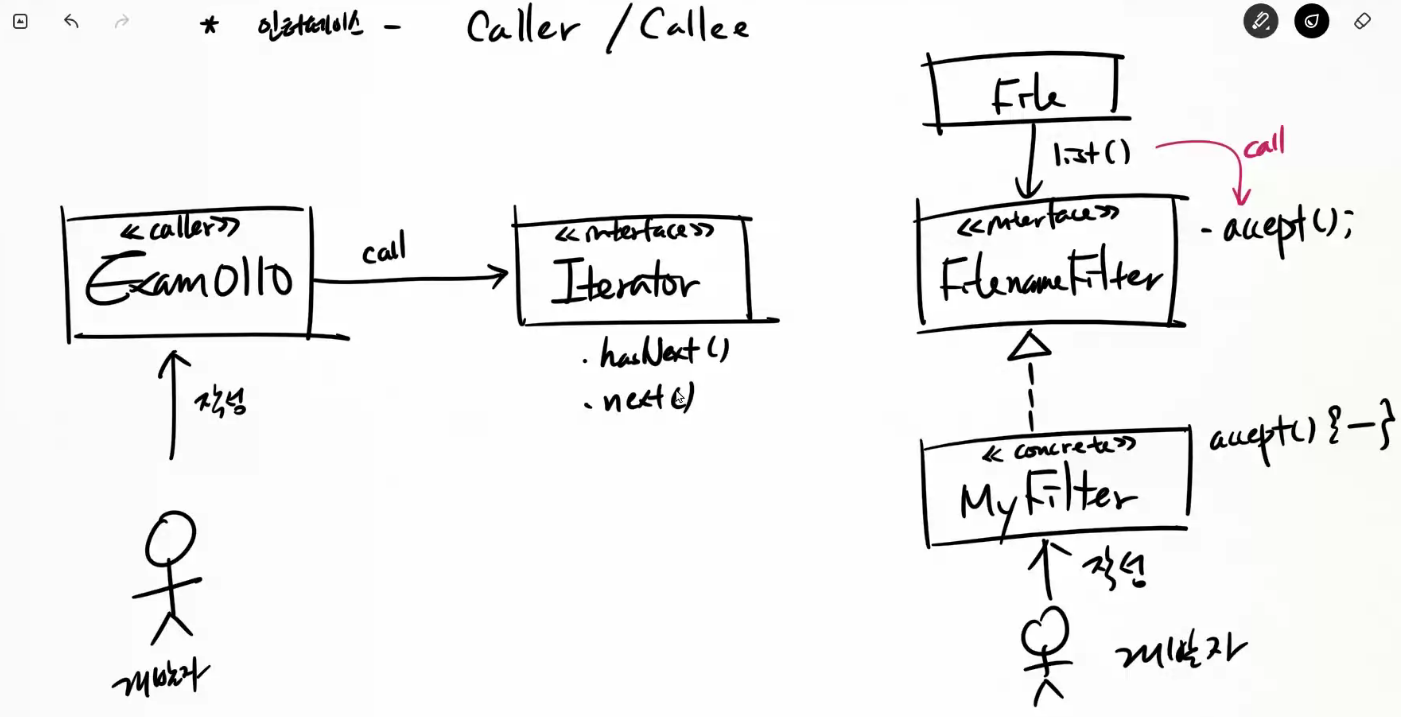 * 인터페이스 - Caller / Callee
<<caller>>
Exam0110
call
<<interface>>
Iterator
. hasNext()
. next()
작성
개발자
File
list()
call
<<interface>>
FilenameFilter
- accept();
<<concrete>>
MyFilter
accept() { - }
작성
개발자